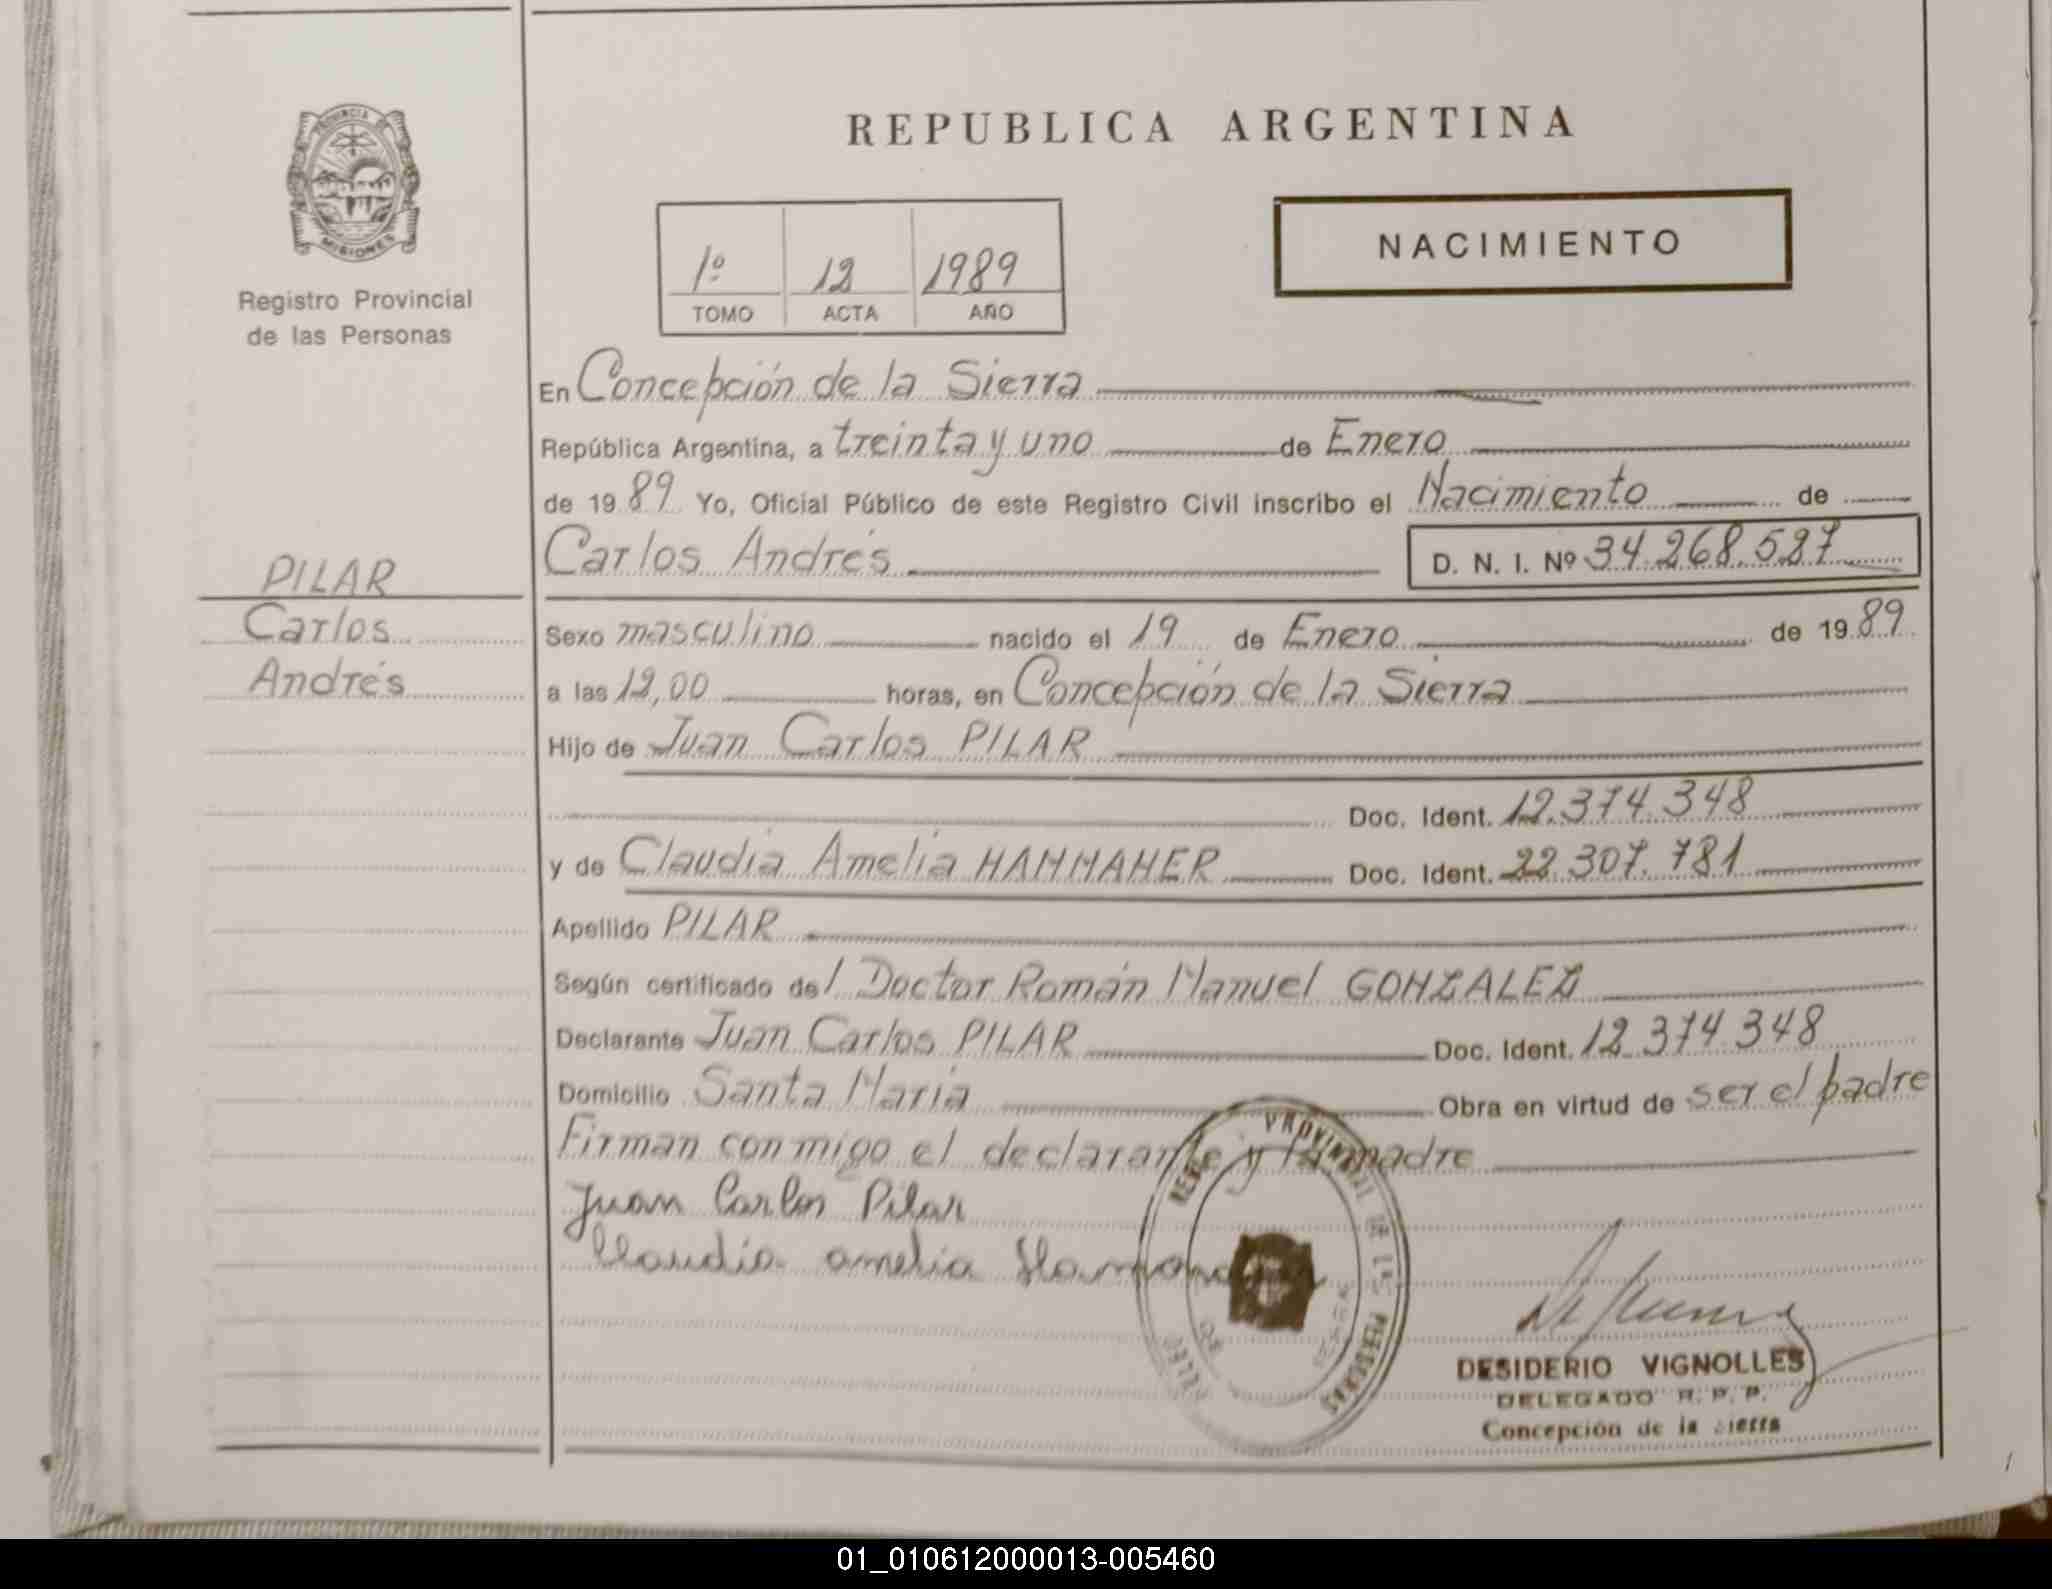 PROVINCIA DE
MISIONES
Registro Provincial
de las Personas
REPUBLICA ARGENTINA
1º 12 1989
TOMO ACTA AÑO
NACIMIENTO
En Concepción de la Sierra
República Argentina, a treinta y uno de Enero
de 1989 Yo, Oficial Público de este Registro Civil inscribo el Nacimiento de
Carlos Andrés D. N. I. Nº 34.268.527
PILAR
Carlos
Andrés
Sexo masculino nacido el 19 de Enero de 1989
a las 12,00 horas, en Concepción de la Sierra
Hijo de Juan Carlos PILAR
Doc. Ident. 12.374.348
y de Claudia Amelia HAMMAHER Doc. Ident. 22.307.781
Apellido PILAR
Según certificado del Doctor Román Manuel GONZALEZ
Declarante Juan Carlos PILAR Doc. Ident. 12.374.348
Domicilio Santa María Obra en virtud de ser el padre
Firman conmigo el declarante y la madre
Juan Carlos Pilar
Claudia amelia
PROVINCIAL DE LAS PERSONAS
DESIDERIO VIGNOLLES
DELEGADO R. P. P.
Concepción de la Sierra
01_010612000013-005460